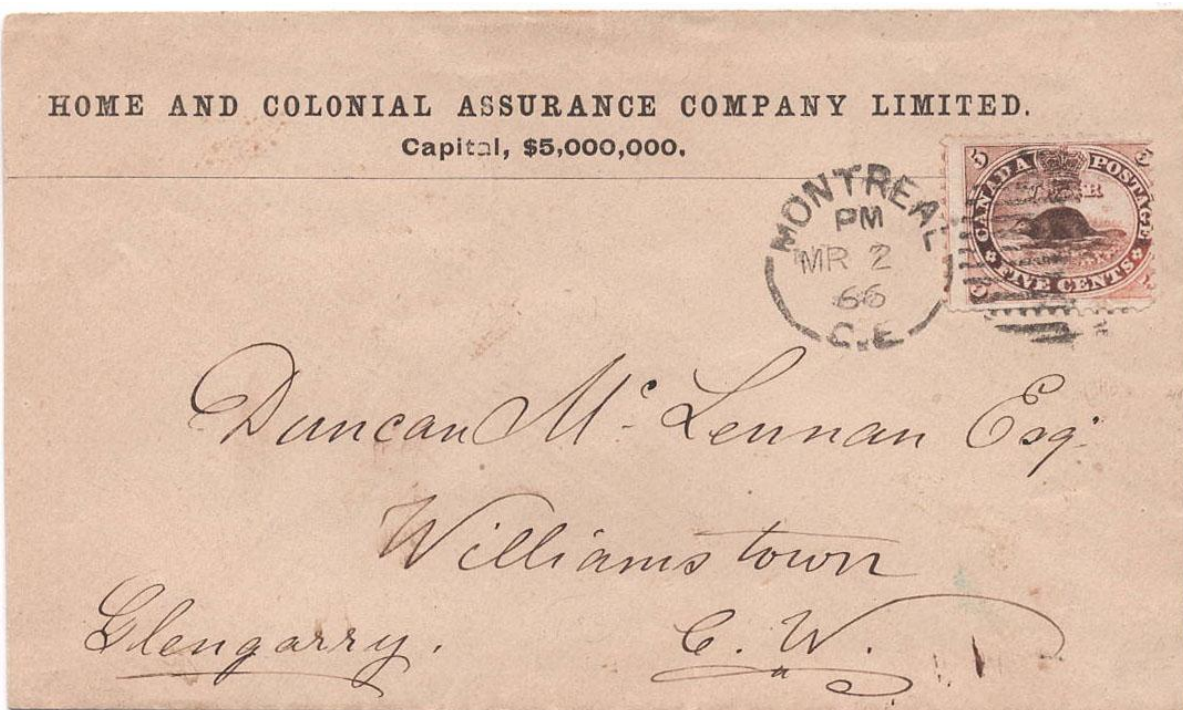 HOME AND COLONIAL ASSURANCE COMPANY LIMITED.
Capital, $5,000,000.
MONTREAL
PM
MR 2
66
C.E
5 5
CANADA POSTAGE
FIVE CENTS
5 5
Duncan Mc Lennan Esqr
Williamstown
Glengarry. C. W.